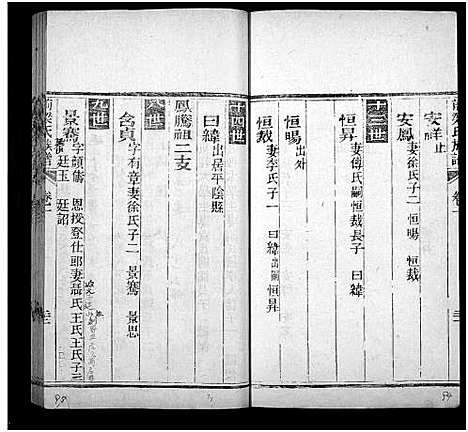 梁氏族譜
卷一
安祥 止
安鳳 妻徐氏子二 恒暘 恒裁
十三世
恒昇 妻傅氏嗣恒裁長子 曰緯
恒暘 出外
恒裁 妻李氏子一 曰緯出嗣恒昇
十四世
曰緯 出居平陰縣
鳳騰祖二支
八世
含貞 字有章妻徐氏子二 景騫 景思
九世
景騫 字 恩授登仕郎妻 氏王氏王氏子三
廷玉 廷詔
梁氏族譜
卷一